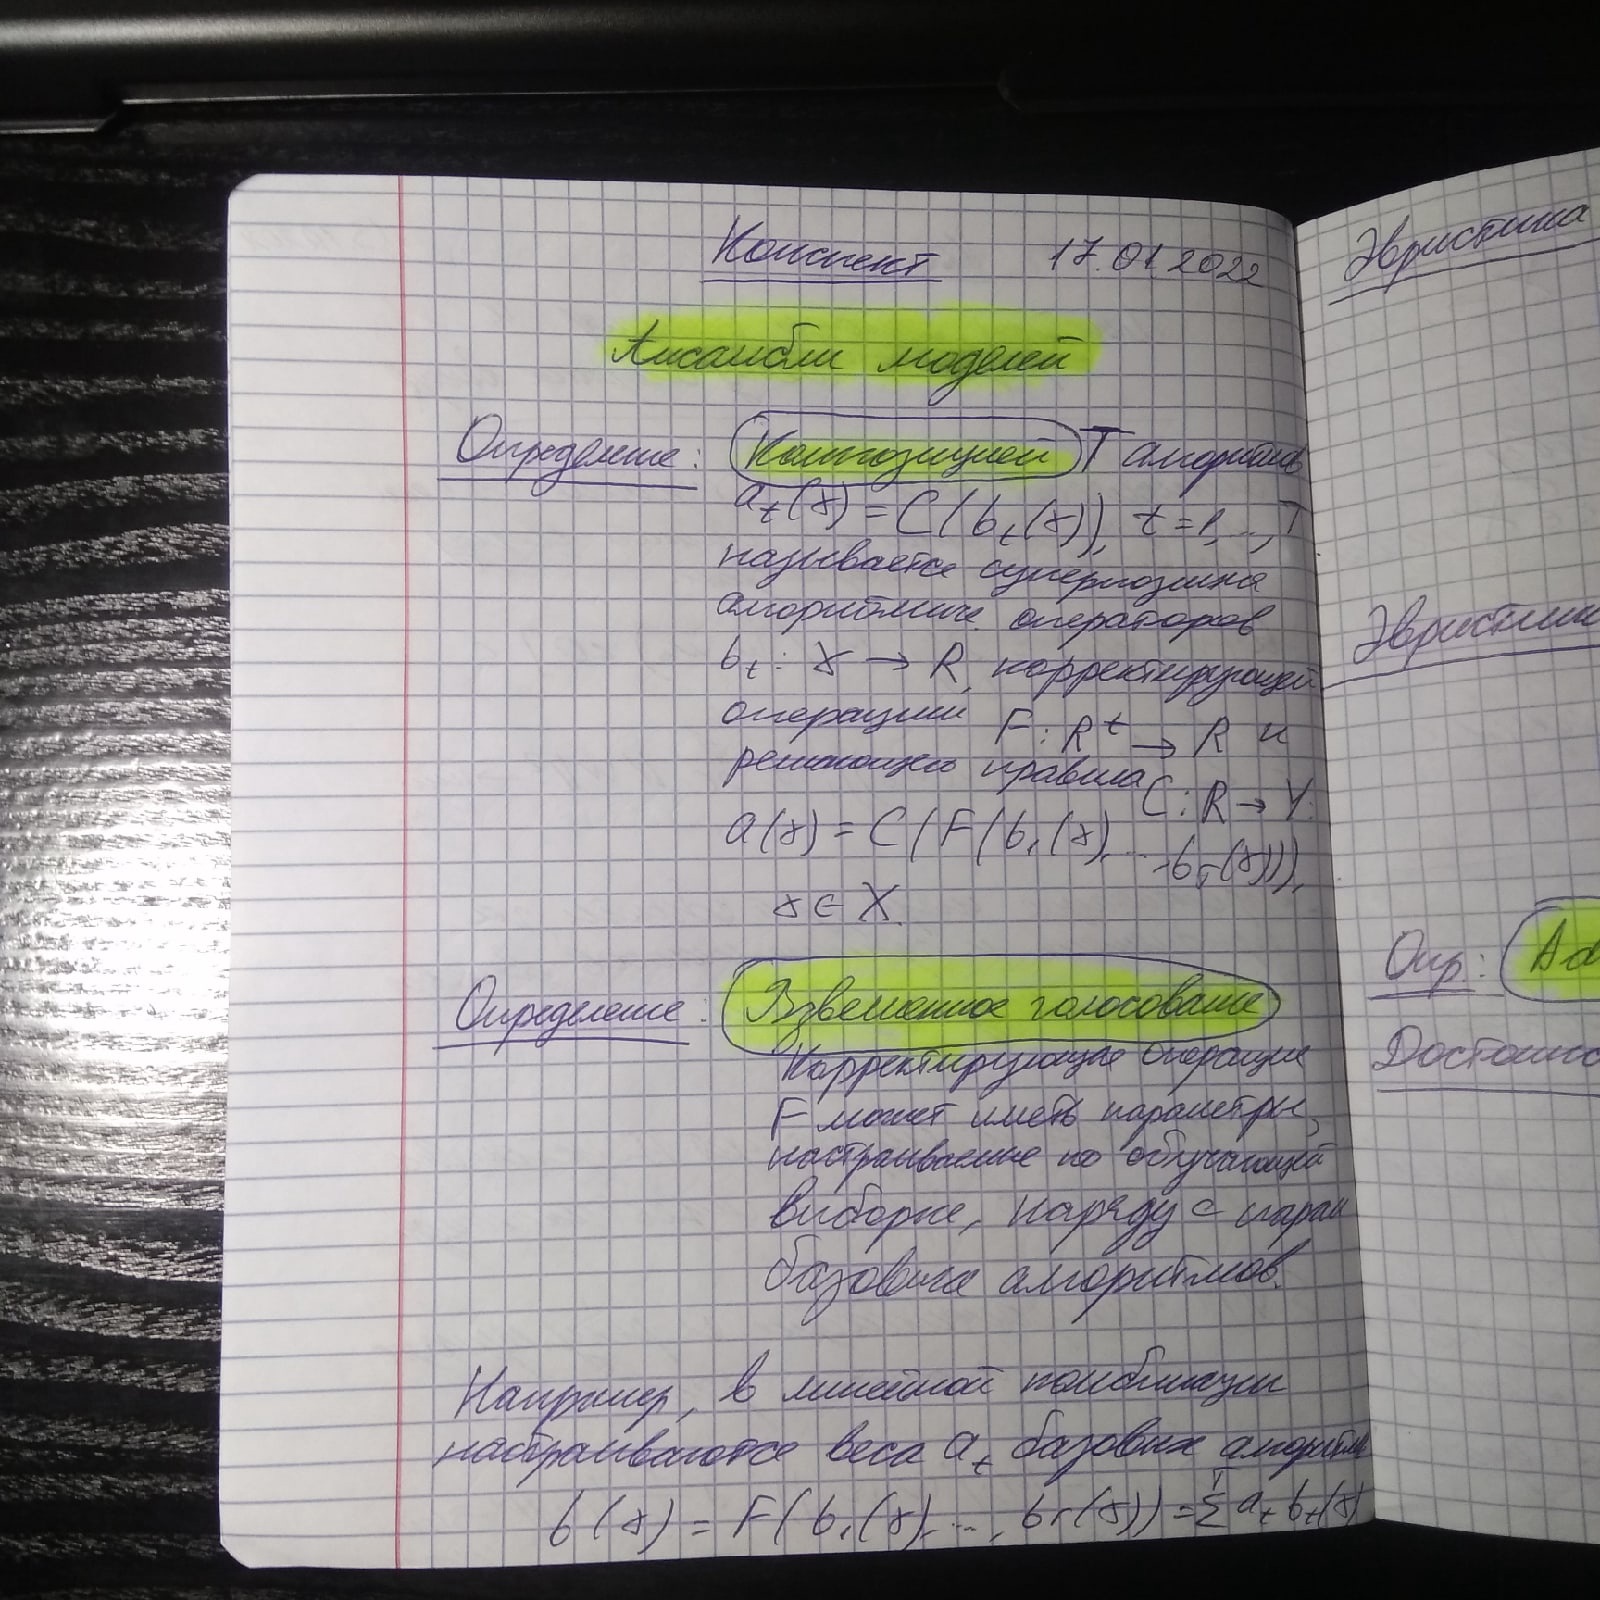 Конспект 17.01.2022
Ансамбли моделей
Определение: Композицией T алгоритмов
a_t(x) = C(b_t(x)), t = 1, ..., T
называется суперпозиция
алгоритмич. операторов
b_t: X → R, корректирующей
операции F: R^t → R и
решающего правила C: R → Y:
a(x) = C(F(b_1(x), ... b_T(x))),
x ∈ X.
Определение: Взвешенное голосование
Корректирующие операции
F может иметь параметры,
настраиваемые по обучающей
выборке, наряду с парам
базовых алгоритмов.
Например, в линейной комбинации
настраиваются веса a_t базовых алгоритм
b(x) = F(b_1(x), ..., b_T(x)) = Σ a_t b_t(x)
Эвристика
Эвристик
Опр: Ad
Достоинс